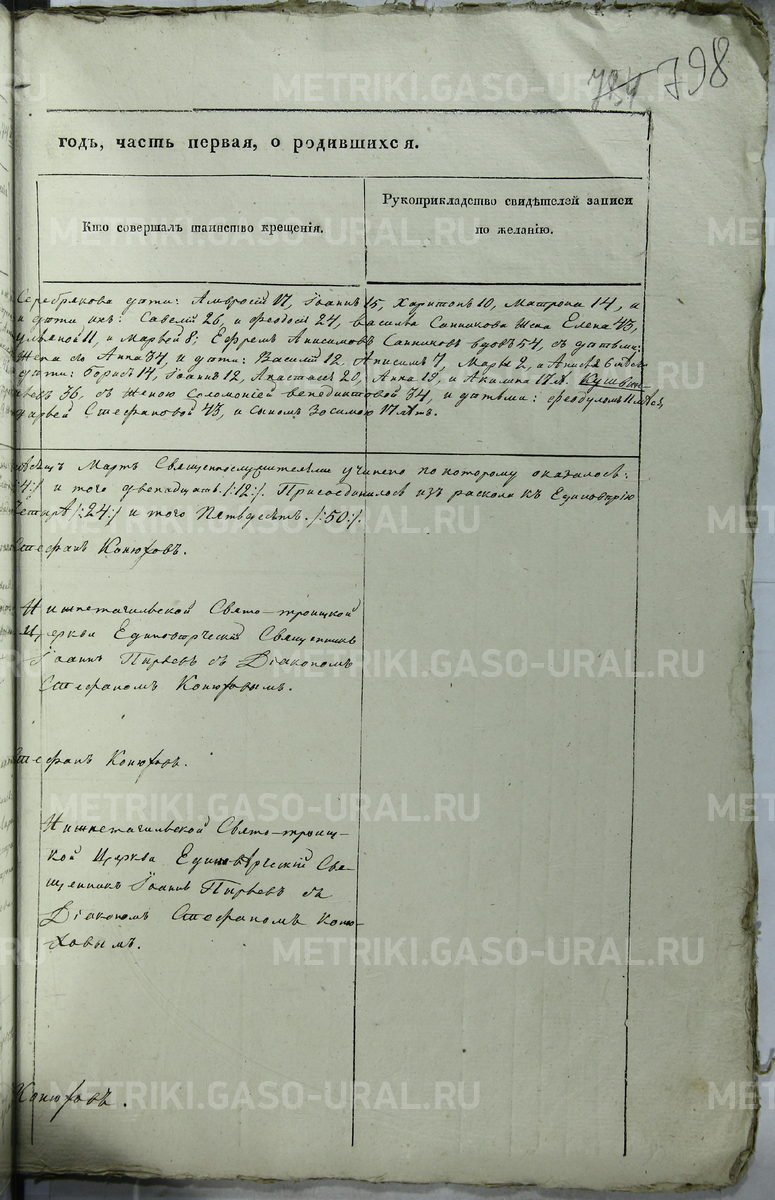 798
годъ, часть первая, о родившихся.
Кто совершалъ таинство крещенія.
Рукоприкладство свидѣтелей записи
по желанію.
Серебрякова дѣти: Амвросій 17, Іоаннъ 15, Харитонъ 10, Матрона 14, и
и дѣти ихъ: Савелій 26, и Феодосій 24, Василья Санникова жена Елена 43,
Ульяной 11, и Марѳой 8; Ефремъ Анисимовъ Санниковъ вдовъ 54, съ дѣтьми:
жена его Анна 34, и дѣти: Василій 12, Анисимъ 7, Марья 2, и Анисья 6 мѣс.
дѣти: Борисъ 14, Іоаннъ 12, Анастасія 20, Анна 19, и Акилина 17 л.
36, съ женою Соломоніей Венедиктовой 34, и дѣтьми: Феодуломъ 11 мѣсяц.
Дарьей Стефановой 43, и сыномъ Зосимою 17 лѣтъ.
мѣсяцъ Мартъ Священнослужителями учинено по которому оказалось:
/:4:/ и того двенадцать /:12:/. Присоединилось изъ раскола къ Единовѣрію
четыре /:24:/ и того пятьдесятъ. /:50:/.
Стефанъ Конюховъ.
Нижнетагильской Свято-троицкой
Церкви Единовѣрческій Священникъ
Іоаннъ Пырьевъ съ Діакономъ
Стефаномъ Конюховымъ.
Стефанъ Конюховъ.
Нижнетагильской Свято-троиц-
кой Церкви Единовѣрческій Свя-
щенникъ Іоаннъ Пырьевъ съ
Діакономъ Стефаномъ Коню-
ховымъ.
Конюховъ.
METRIKI.GASO-URAL.RU